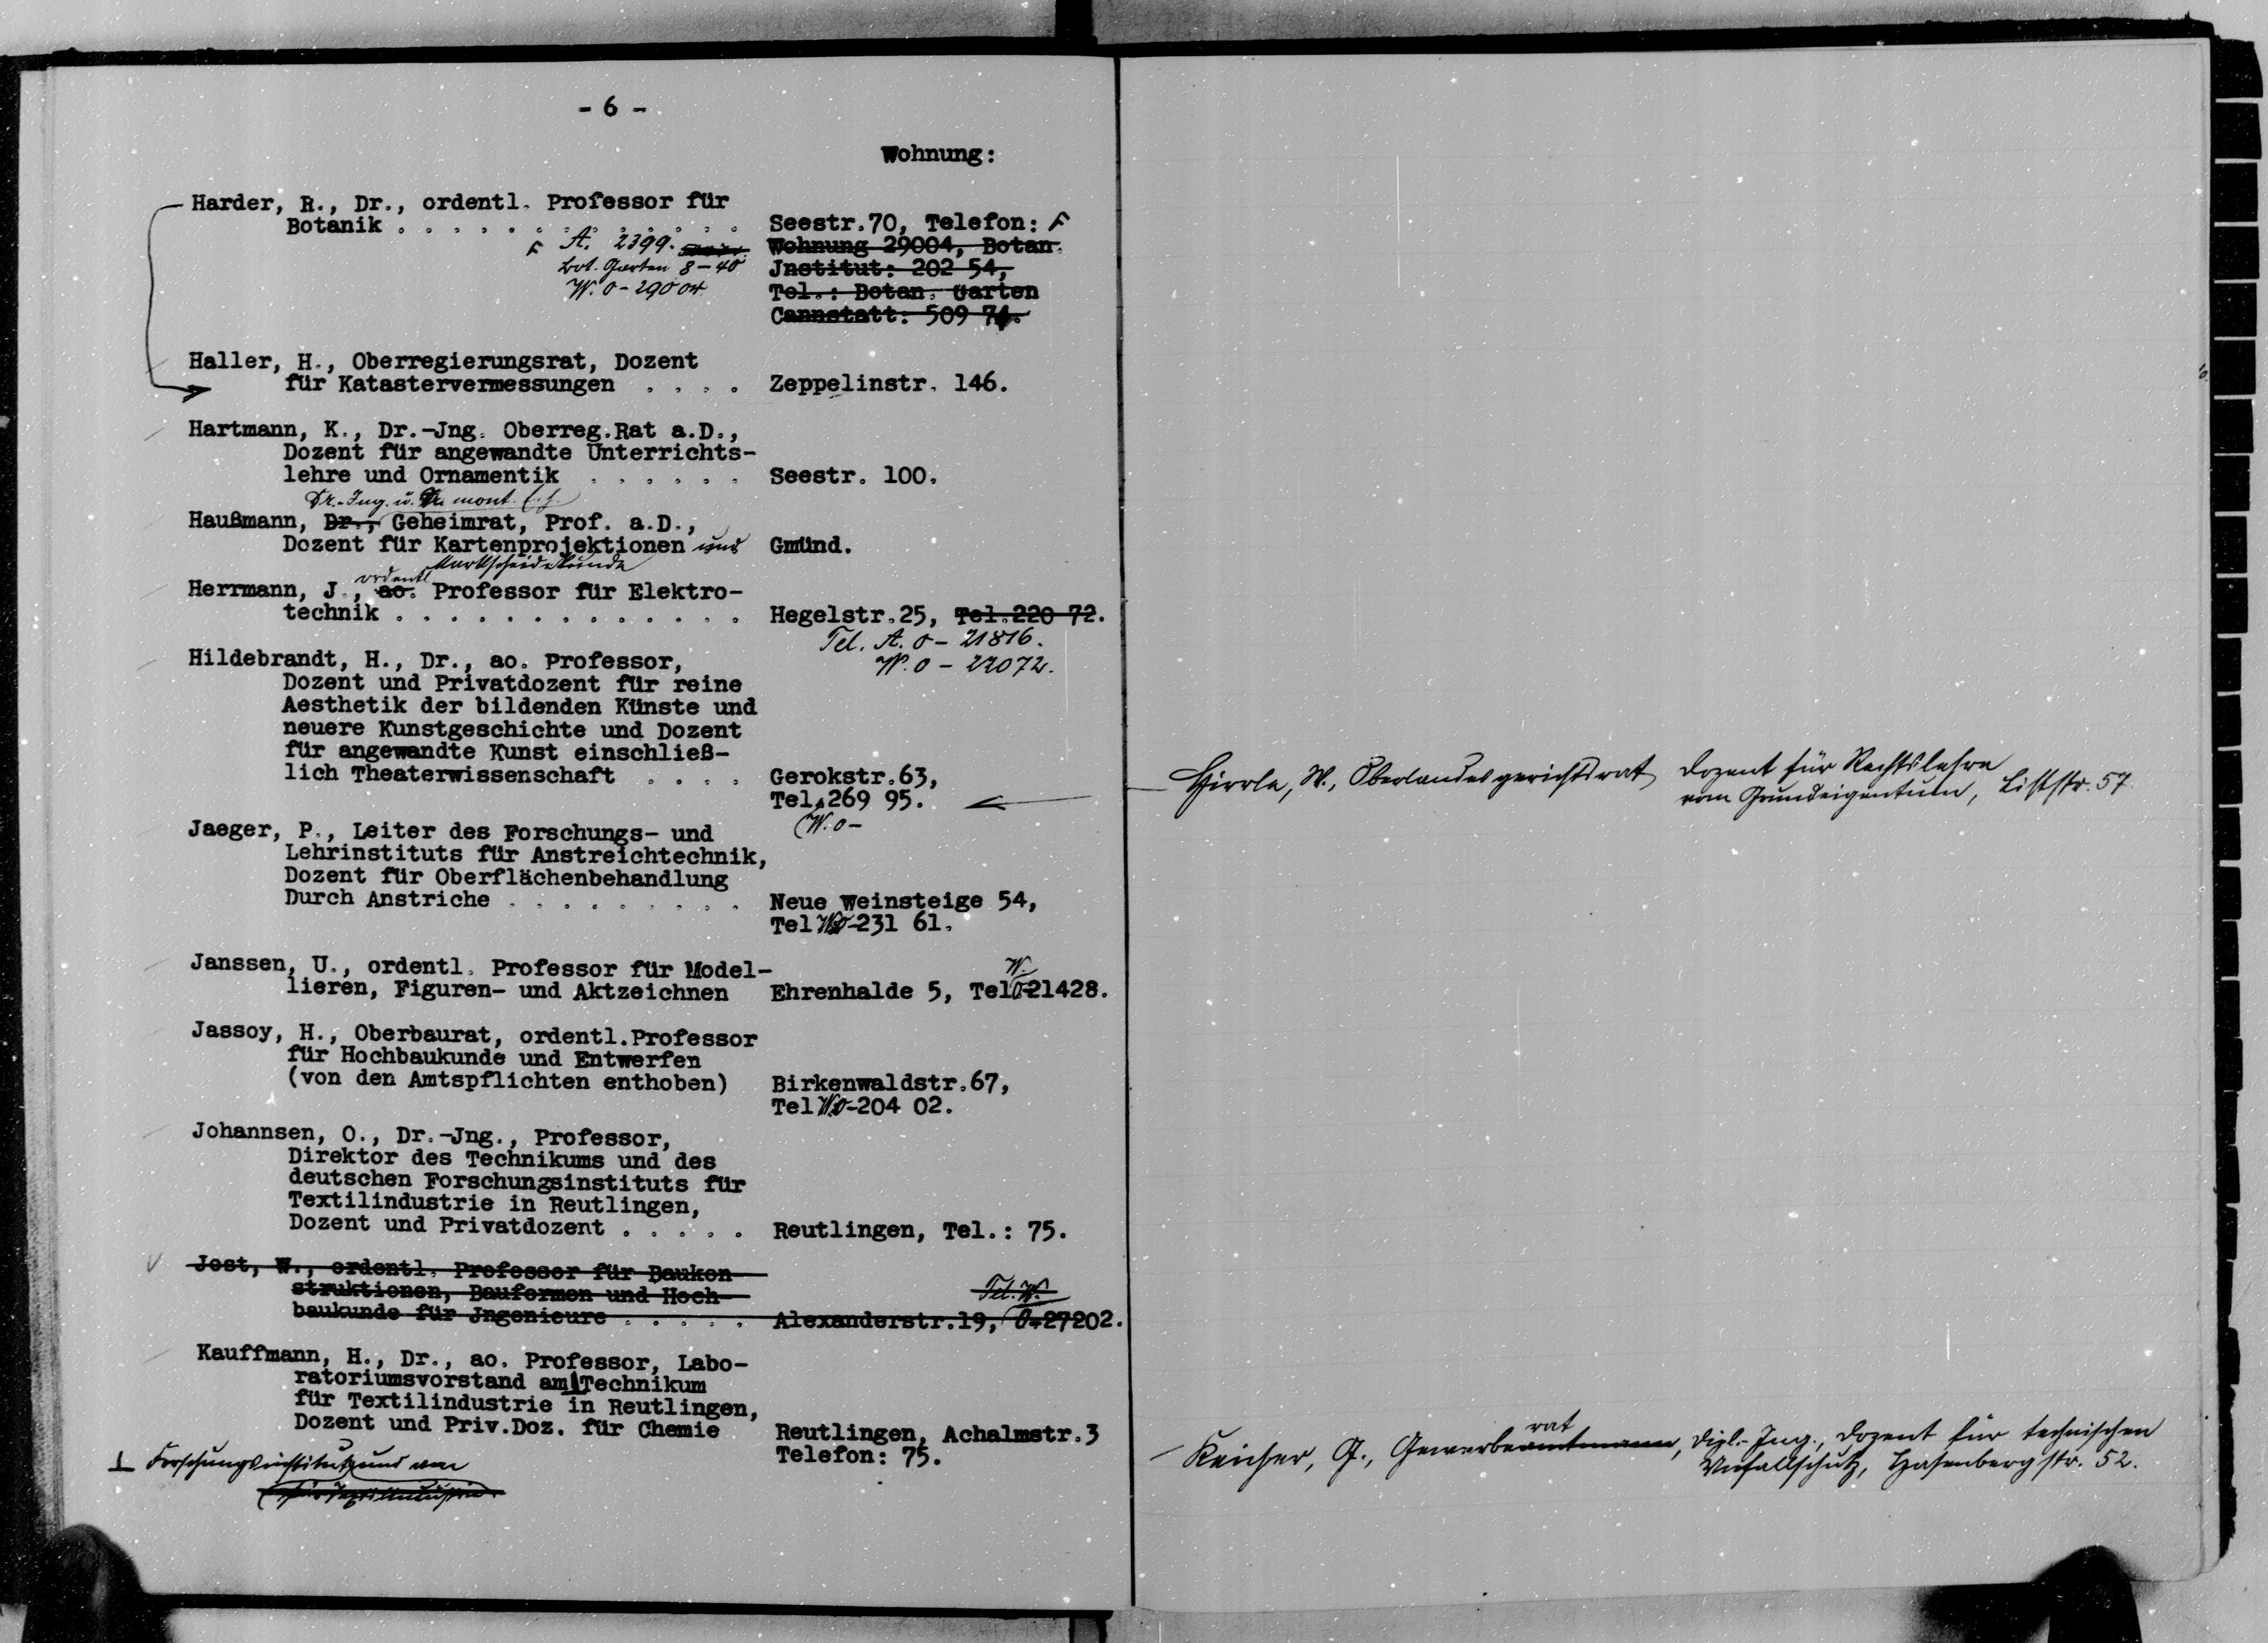 - 6 -
Wohnung:
Harder, R., Dr., ordentl. Professor für
Botanik . . . . . . . . . . . . . Seestr.70, Telefon: F
F A. 2399. Wohnung 29004, Botan.
Bot. Garten 8-40 Jnstitut: 202 54,
W. 0-29004 Tel.: Botan. Garten
Cannstatt: 509 74.
Haller, H., Oberregierungsrat, Dozent
für Katastervermessungen . . . . Zeppelinstr. 146.
Hartmann, K., Dr.-Jng. Oberreg.Rat a.D.,
Dozent für angewandte Unterrichts-
lehre und Ornamentik . . . . . . Seestr. 100.
Dr.-Ing. u. Dr. mont. E.h.
Haußmann, Dr., Geheimrat, Prof. a.D.,
Dozent für Kartenprojektionen und Gmünd.
Markscheidekunde
ordentl
Herrmann, J., ao. Professor für Elektro-
technik . . . . . . . . . . . . . Hegelstr.25, Tel.220 72.
Tel. A. 0-21816.
W. 0-22072.
Hildebrandt, H., Dr., ao. Professor,
Dozent und Privatdozent für reine
Aesthetik der bildenden Künste und
neuere Kunstgeschichte und Dozent
für angewandte Kunst einschließ-
lich Theaterwissenschaft . . . . Gerokstr.63,
Tel. 269 95.
W. 0-
Jaeger, P., Leiter des Forschungs- und
Lehrinstituts für Anstreichtechnik,
Dozent für Oberflächenbehandlung
Durch Anstriche . . . . . . . . . Neue Weinsteige 54,
Tel W.0-231 61.
Janssen, U., ordentl. Professor für Model- W.
lieren, Figuren- und Aktzeichnen Ehrenhalde 5, Tel 0-21428.
Jassoy, H., Oberbaurat, ordentl.Professor
für Hochbaukunde und Entwerfen
(von den Amtspflichten enthoben) Birkenwaldstr.67,
Tel W.0-204 02.
Johannsen, O., Dr.-Jng., Professor,
Direktor des Technikums und des
deutschen Forschungsinstituts für
Textilindustrie in Reutlingen,
Dozent und Privatdozent . . . . . Reutlingen, Tel.: 75.
Jost, W., ordentl. Professor für Baukon-
struktionen, Bauformen und Hoch- Tel. W.
baukunde für Jngenieure . . . . . Alexanderstr.19, 0-27202.
Kauffmann, H., Dr., ao. Professor, Labo-
ratoriumsvorstand am Technikum
für Textilindustrie in Reutlingen,
Dozent und Priv.Doz. für Chemie Reutlingen, Achalmstr.3
Telefon: 75.
Forschungsinstitut und am
für Textilindustrie
Hirrle, W., Oberlandesgerichtsrat, Dozent für Rechtslehre
vom Grundeigentum, Liststr. 57.
rat
Keicher, G., Gewerbeamtmann, Dipl.-Ing., Dozent für technischen
Unfallschutz, Hasenbergstr. 52.